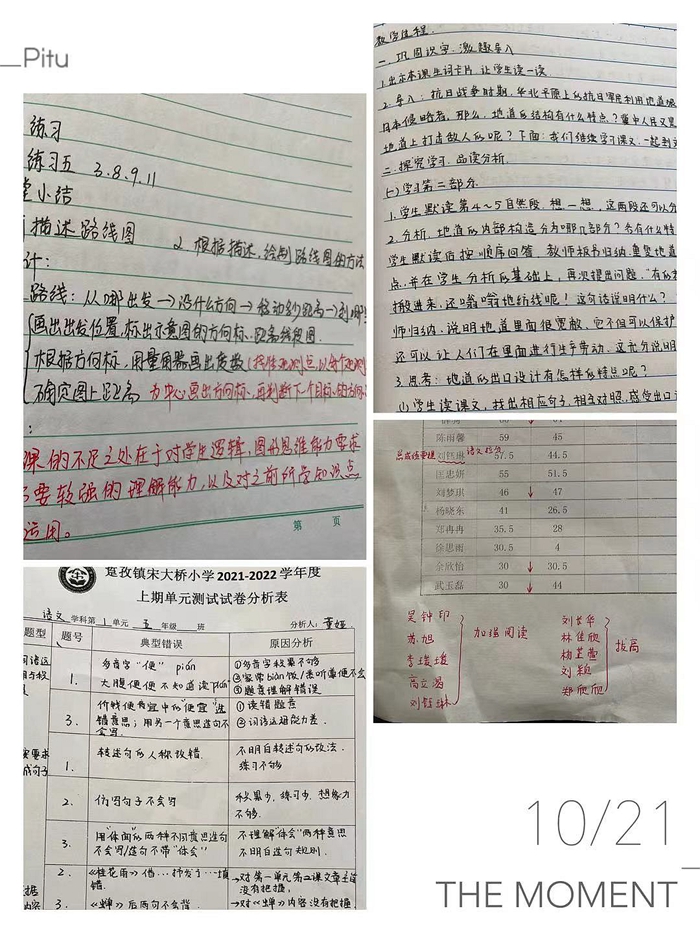 Pitu
练习
练习五 3.8.9.11
堂小结
描述路线图 2.根据描述,绘制路线图的方法
计:
路线:从哪出发→沿什么方向→移动多少距离→到哪
画出出发位置,标出示意图的方向标、距离线段图.
根据方向标,用量角器画出度数(
确定图上距离 为中心画出方向标,再判断下个目标的方向
课的不足之处在于对学生逻辑,图形思维能力要求
要较强的理解能力,以及对之前所学知识点
运用。
第 页
教学过程
一、巩固识字,激趣导入
1.出示本课生词卡片,让学生读一读.
2.导入:抗日战争时期,华北平原上的抗日军民利用地道
日本侵略者,那么,地道的结构有什么特点?冀中人民又是
地道上打击敌人的呢?下面,我们继续学习课文,一起到
二、探究学习,品读分析.
(一)学习第二部分.
1.学生默读第4~5自然段,想一想,这两段还可以分
2.分析,地道的内部构造分为哪几部分?各有什么特
学生默读后按顺序回答,教师板书归纳,重点地道
点,并在学生分析的基础上,再次提出问题,“有的
搬进来,还嗡嗡地纺线呢!这句话说明什么?
师归纳、说明地道里面很宽敞,它不但可以保护
还可以让人们在里面进行生产劳动,这充分说明
3.思考:地道的出口设计有怎样的特点呢?
(1)学生读课文,找出相应句子,相互对照,感受出口
陈雨馨 59 45
刘钰琳 57.5 44.5
匡思妍 55 51.5
刘梦琪 46 ↓ 47
杨晓东 41 26.5
郑冉冉 35.5 28
徐思雨 30.5 4
余欣怡 30 ↓ 30.5
武玉磊 30 ↓ 44
吴钟印
苏旭
李璇璇
高立涵
刘钰琳
加强阅读
刘若华
林佳欣
杨芷萱
刘颖
郑欣欣
拔高
宋大桥小学2021-2022学年度
上期单元测试试卷分析表
语文 学科第 1 单元 五 年级 班 分析人:董娅
题型 题号 典型错误 原因分析
1. 多音字“便” pián ①多音字积累不够
大腹便便不知道读pián
③题意理解错误
3. 价钱便宜中的“便宜”选 ①读错题意
错意思;用另一个意思造句不 ②词语运用能力差.
会写
1. 转述句的人称改错. 不明白转述句的改法.
练习不够
2. 仿写句子不会写 积累少,练习少,想象力
不够.
3. 用“体面”的两种不同意思造句 不理解“体会”两种意思
不会写/造句不带“体会” 不明白造句规则.
2. 《桂花雨》借…抒发了…填 →对第一单元第二课文章主旨
错. 没有把握.
3. 《蝉》后两句不会背. →对《蝉》内容没有把握
10/21
THE MOMENT